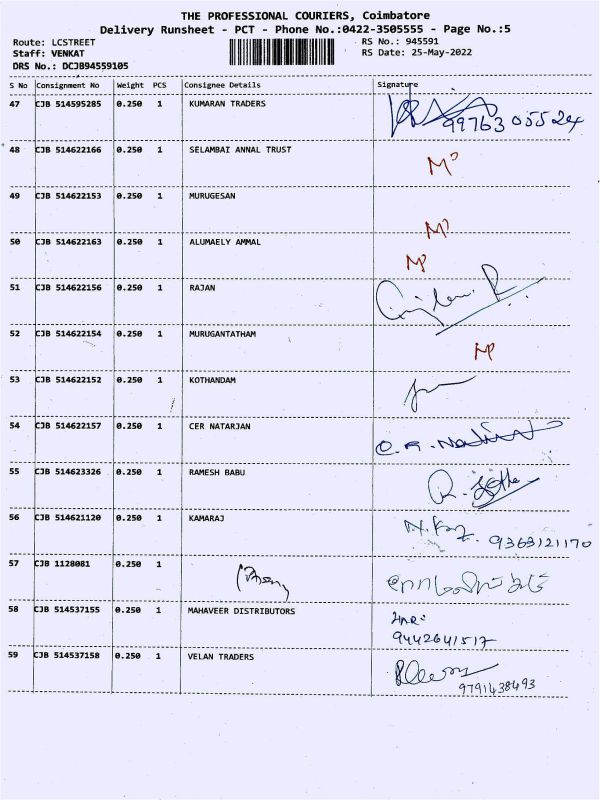 THE PROFESSIONAL COURIERS, Coimbatore
Delivery Runsheet - PCT - Phone No.:0422-3505555 - Page No.:5
Route: LCSTREET RS No.: 945591
Staff: VENKAT RS Date: 25-May-2022
DRS No.: DCJB94559105
S No Consignment No Weight PCS Consignee Details Signature
47 CJB 514595285 0.250 1 KUMARAN TRADERS
99763 05524
48 CJB 514622166 0.250 1 SELAMBAI ANNAL TRUST
49 CJB 514622153 0.250 1 MURUGESAN
50 CJB 514622163 0.250 1 ALUMAELY AMMAL
51 CJB 514622156 0.250 1 RAJAN
52 CJB 514622154 0.250 1 MURUGANTATHAM
53 CJB 514622152 0.250 1 KOTHANDAM
54 CJB 514622157 0.250 1 CER NATARJAN
55 CJB 514623326 0.250 1 RAMESH BABU
56 CJB 514621120 0.250 1 KAMARAJ
9363121170
57 CJB 1128081 0.250 1
58 CJB 514537155 0.250 1 MAHAVEER DISTRIBUTORS
9442641517
59 CJB 514537158 0.250 1 VELAN TRADERS
9791438493